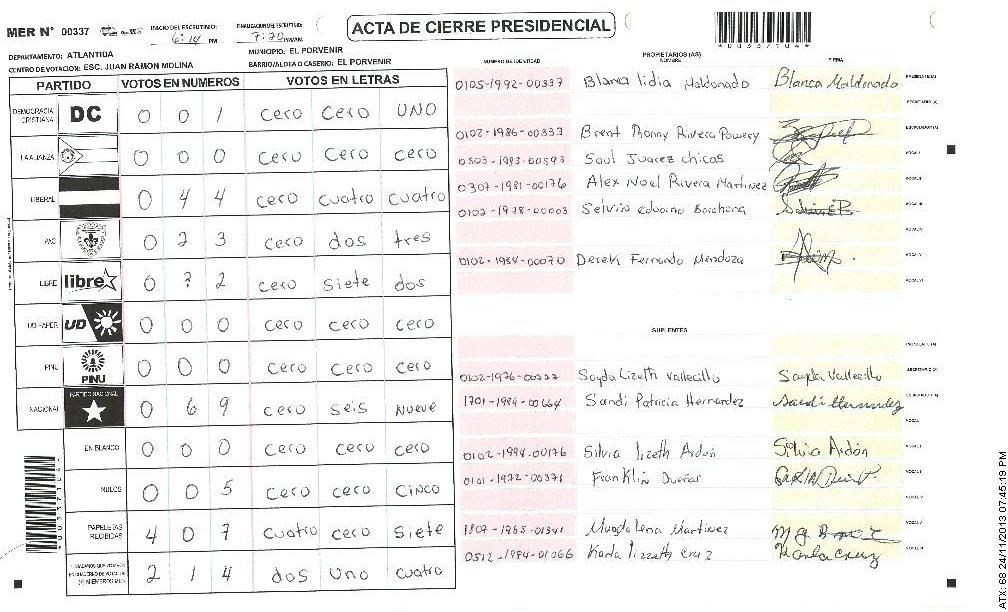 MER N° 00337
INICIO DEL ESCRUTINIO: 6:14 PM
FINALIZACION DEL ESCRUTINIO: 7:20 PM/AM
ACTA DE CIERRE PRESIDENCIAL
DEPARTAMENTO: ATLANTIDA
MUNICIPIO: EL PORVENIR
CENTRO DE VOTACION: ESC. JUAN RAMON MOLINA
BARRIO/ALDEA O CASERIO: EL PORVENIR
PARTIDO VOTOS EN NUMEROS VOTOS EN LETRAS
DEMOCRACIA CRISTIANA DC 0 0 1 cero cero UNO
LA ALIANZA 0 0 0 cero cero cero
LIBERAL 0 4 4 cero cuatro cuatro
PAC 0 2 3 cero dos tres
LIBRE libre 0 7 2 cero siete dos
UD-FAPER UD 0 0 0 cero cero cero
PINU PINU 0 0 0 cero cero cero
NACIONAL PARTIDO NACIONAL 0 6 9 cero seis Nueve
EN BLANCO 0 0 0 cero cero cero
NULOS 0 0 5 cero cero CINCO
PAPELETAS RECIBIDAS 4 0 7 cuatro cero siete
2 1 4 dos Uno cuatro
NUMERO DE IDENTIDAD PROPIETARIOS (AS) NOMBRE FIRMA
0105-1992-00337 Blanca lidia Maldonado Blanca Maldonado PRESIDENTE (A)
SECRETARIO (A)
0102-1986-00333 Brent Ronny Rivera Powery ESCRUTADOR (A)
0503-1993-00593 Saul Juarez chicas VOCAL I
0307-1981-00176 Alex Noel Rivera Martinez VOCAL II
0102-1978-00003 Selvin Barahona VOCAL III
VOCAL IV
0102-1984-00070 Derek Fernando Mendoza VOCAL V
VOCAL VI
SUPLENTES
PRESIDENTE (A)
0102-1976-00337 Sayda Lizeth Vallecillo Sayda Vallecillo SECRETARIO (A)
1701-1984-00664 Sandi Patricia Hernandez Sandi Hernandez ESCRUTADOR (A)
VOCAL I
0102-1994-00176 Silvia lizeth Ardón Silvia Ardón
0101-1972-00371 Franklin Dueñas
1807-1965-01341 Magdalena Martinez
0512-1984-01066 Karla lizzeth Cruz Karla Cruz
ATX: 68 24/11/2013 07:45:19 PM